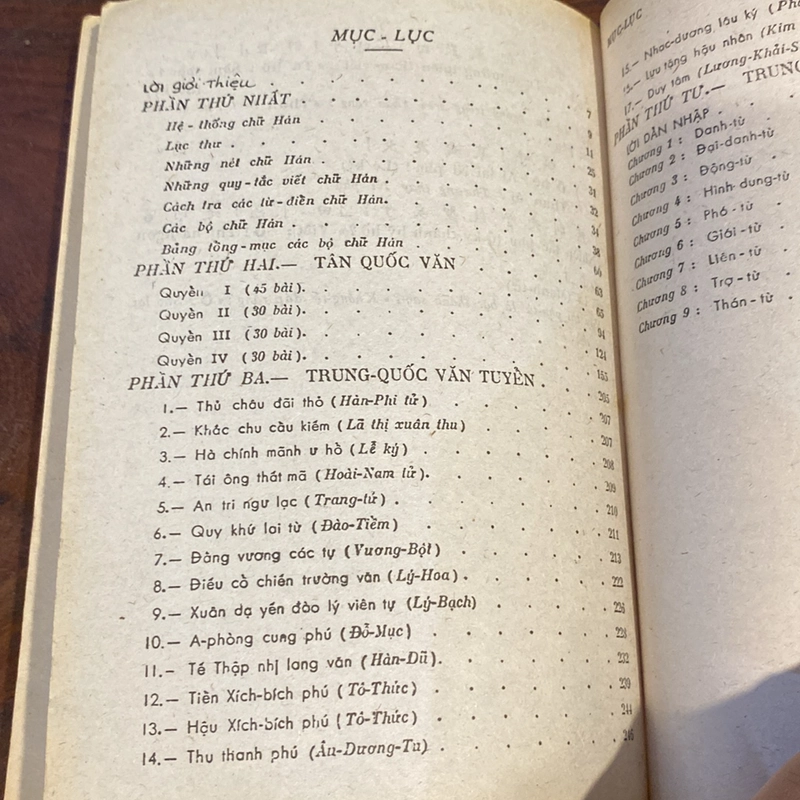 MỤC - LỤC
Lời giới thiệu
PHẦN THỨ NHẤT . 7
Hệ - thống chữ Hán 9
Lục thư . 11
Những nét chữ Hán 25
Những quy-tắc viết chữ Hán 31
Cách tra các từ-điển chữ Hán. 32
Các bộ chữ Hán . 34
Bảng tổng-mục các bộ chữ Hán 38
PHẦN THỨ HAI.— TÂN QUỐC VĂN 60
Quyển I (45 bài). 63
Quyển II (30 bài). 65
Quyển III (30 bài). 94
Quyển IV (30 bài). 124
PHẦN THỨ BA.— TRUNG-QUỐC VĂN TUYỂN . 155
1.— Thủ châu đãi thỏ (Hàn-Phi tử) 205
2.— Khắc chu cầu kiếm (Lã thị xuân thu) 207
3.— Hà chính mãnh ư hồ (Lễ ký) 207
4.— Tái ông thất mã (Hoài-Nam tử). 208
5.— An tri ngư lạc (Trang-tử) . 209
6.— Quy khứ lai từ (Đào-Tiềm) 210
7.— Đằng vương các tự (Vương-Bột) 211
8.— Điếu cổ chiến trường văn (Lý-Hoa) . 213
9.— Xuân dạ yến đào lý viên tự (Lý-Bạch) 222
10.— A-phòng cung phú (Đỗ-Mục) 226
11.— Tế Thập nhị lang văn (Hàn-Dũ). 228
12.— Tiền Xích-bích phú (Tô-Thức) 232
13.— Hậu Xích-bích phú (Tô-Thức) 239
14.— Thu thanh phú (Âu-Dương-Tu) . 244
246
MỤC-LỤC
15.— Nhạc-dương lâu ký
Lưu tặng hậu nhân (Kim
17.— Duy tâm (Lương-Khải-S
PHẦN THỨ TƯ.— TRUNG
LỜI DẪN NHẬP .
Chương 1 : Danh-từ
Chương 2 : Đại-danh-từ
Chương 3 : Động-từ
Chương 4 : Hình dung-từ
Chương 5 : Phó - từ
Chương 6 : Giới - từ
Chương 7 : Liên - từ
Chương 8 : Trợ - từ
Chương 9 : Thán - từ